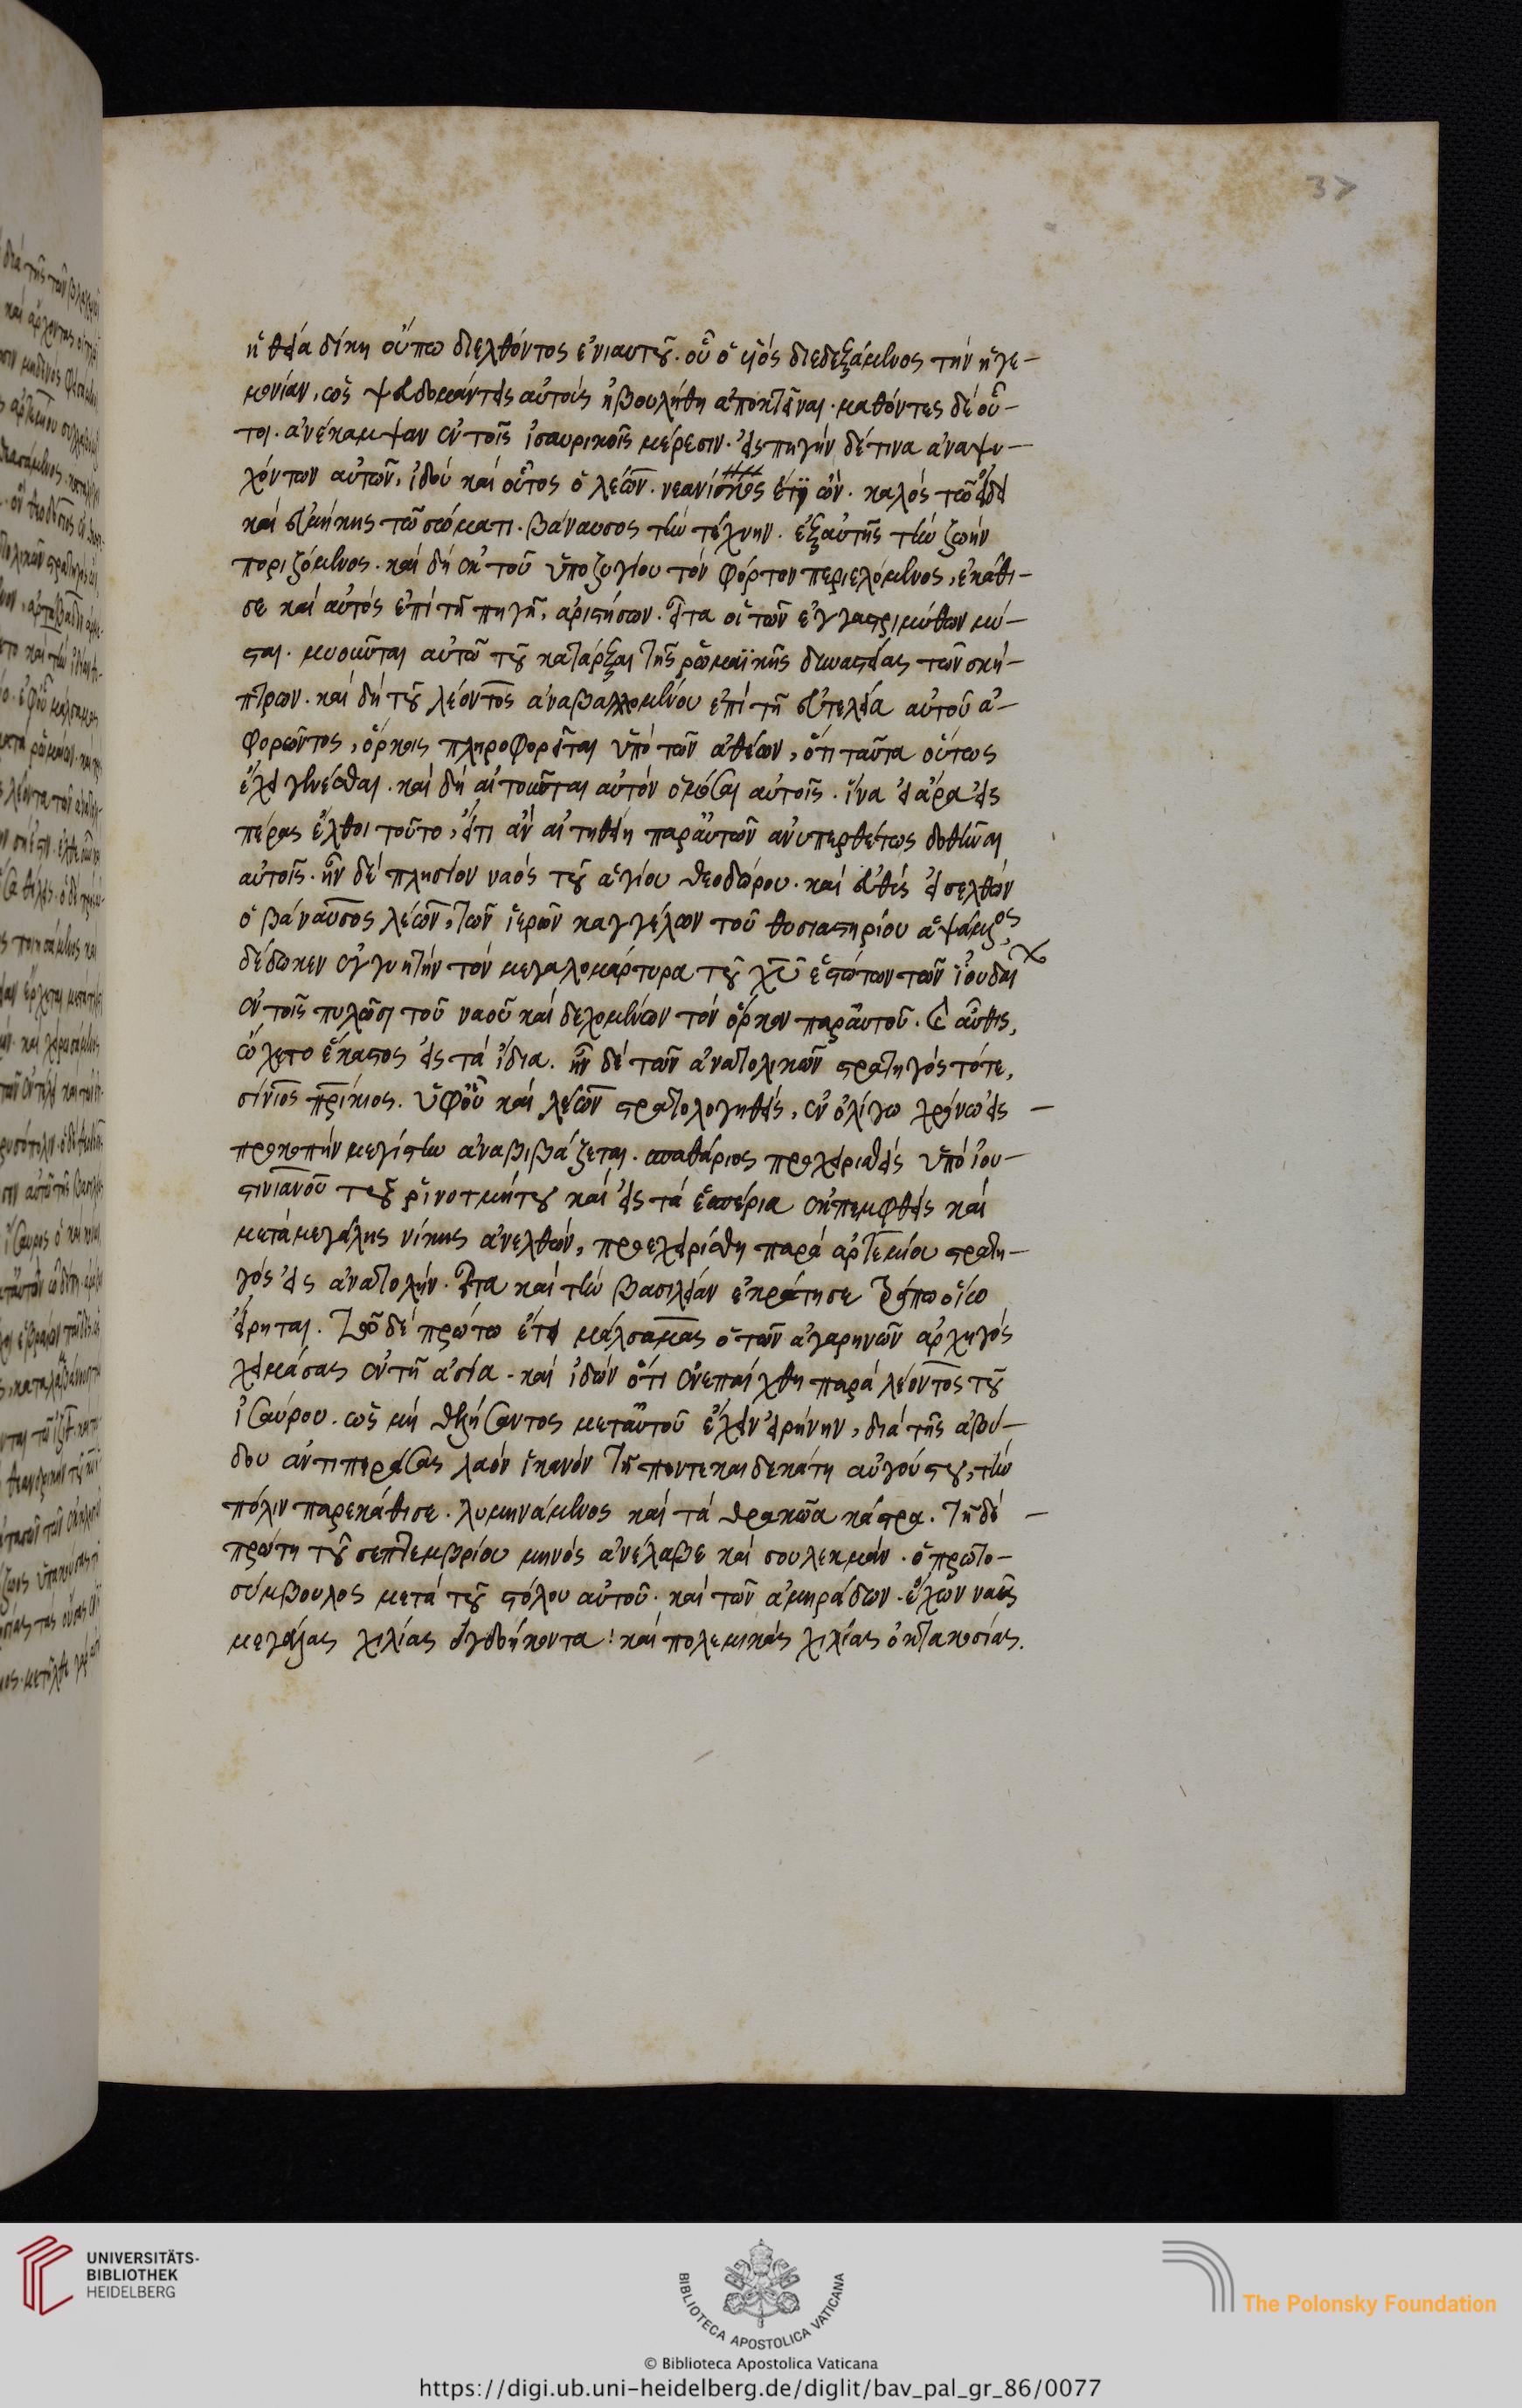 37
ἡ θεία δίκη οὔπω διελθόντος ἐνιαυτοῦ. οὗ ὁ υἱός διεδεξάμενος τήν ἡγε-
μονίαν, ὡς ψευδομάντεις αὐτούς ἠβουλήθη ἀποκτεῖναι. μαθόντες δέ οὗ-
τοι. ἀνέκαμψαν ἐν τοῖς ἰσαυρικοῖς μέρεσιν. εἰς πηγήν δέ τινα ἀναψυ-
χόντων αὐτῶν, ἰδού καί οὗτος ὁ λέων. νεανίσκος ὤν. καλός τῷ εἴδει
καί εὐμήκης τῷ σώματι. βάναυσος τήν τέχνην. ἐξ αὐτῆς τήν ζωήν
ποριζόμενος. καί δή ἐκ τοῦ ὑποζυγίου τόν φόρτον περιελόμενος, ἐκάθι-
σε καί αὐτός ἐπί τῇ πηγῇ, ἀριστήσων. εἶτα οἱ τῶν ἐγγαστριμύθων μύ-
σται. μυοῦνται αὐτῷ τοῦ κατάρξαι τῆς ῥωμαϊκῆς δυναστείας τῶν σκή-
πτρων. καί δή τοῦ λέοντος ἀναβαλλομένου ἐπί τῇ εὐτελείᾳ αὐτοῦ ἀ-
φορῶντος, ὅρκοις πληροφορεῖται ὑπό τῶν ἀθέων, ὅτι ταῦτα οὕτως
ἔχει γενέσθαι. καί δή αἰτοῦνται αὐτόν ὀμόσαι αὐτοῖς. ἵνα εἰ ἄρα εἰς
πέρας ἔλθοι τοῦτο, ὅτι ἄν αἰτηθείη παρ' αὐτῶν ἀνυπερθέτως δοθῆναι
αὐτοῖς. ἦν δέ πλησίον ναός τοῦ ἁγίου θεοδώρου. καί εὐθύς εἰσελθών
ὁ βάναυσος λέων, τῶν ἱερῶν καγγέλων τοῦ θυσιαστηρίου ἁψάμενος
δέδωκεν ἐγγυητήν τόν μεγαλομάρτυρα τοῦ χυ ἑστώτων τῶν ἰουδαί
ἐν τοῖς πυλῶσι τοῦ ναοῦ καί δεχομένων τόν ὅρκον παρ' αὐτοῦ. καί αὖθις,
ᾤχετο ἕκαστος εἰς τά ἴδια. ἦν δέ τῶν ἀνατολικῶν στρατηγός τότε,
σίνιος πρίκιος. ὑφ' οὗ καί λέων στρατολογηθείς, ἐν ὀλίγῳ χρόνῳ εἰς -
προκοπήν μεγίστην ἀναβιβάζεται. σπαθάριος προχειρισθείς ὑπό ἰου-
στινιανοῦ τοῦ ῥινοτμήτου καί εἰς τά ἑσπέρια ἐκπεμφθείς καί
μετά μεγάλης νίκης ἀνελθών, προεχειρίσθη παρά ἀρτεμίου στρατη-
γός εἰς ἀνατολήν. εἶτα καί τήν βασιλείαν ἐκράτησε τρόπῳ οἵῳ
εἴρηται. τῷ δέ πρώτῳ ἔτει μάλσαμας ὁ τῶν ἀγαρηνῶν ἀρχηγός
χειμάσας ἐν τῇ ἀσίᾳ. καί ἰδών ὅτι ἐνεπαίχθη παρά λέοντος τοῦ
ἰσαύρου. ὡς μή θελήσαντος μετ' αὐτοῦ ἔχειν εἰρήνην, διά τῆς ἀβύ-
δου ἀντιπεράσας λαόν ἱκανόν τῇ πεντεκαιδεκάτῃ αὐγούστου, τήν
πόλιν παρεκάθισε. λυμηνάμενος καί τά θρακῶα κάστρα. τῇ δέ -
πρώτῃ τοῦ σεπτεμβρίου μηνός ἀνέλαβε καί σουλεκμάν. ὁ πρωτο-
σύμβουλος μετά τοῦ στόλου αὐτοῦ. καί τῶν ἀμηράδων. ἔχων ναῦς
μεγάλας χιλίας ὀγδοήκοντα! καί πολεμικάς χιλίας ὀκτακοσίας.
UNIVERSITÄTS-
BIBLIOTHEK
HEIDELBERG
BIBLIOTECA APOSTOLICA VATICANA
The Polonsky Foundation
© Biblioteca Apostolica Vaticana
https://digi.ub.uni-heidelberg.de/diglit/bav_pal_gr_86/0077